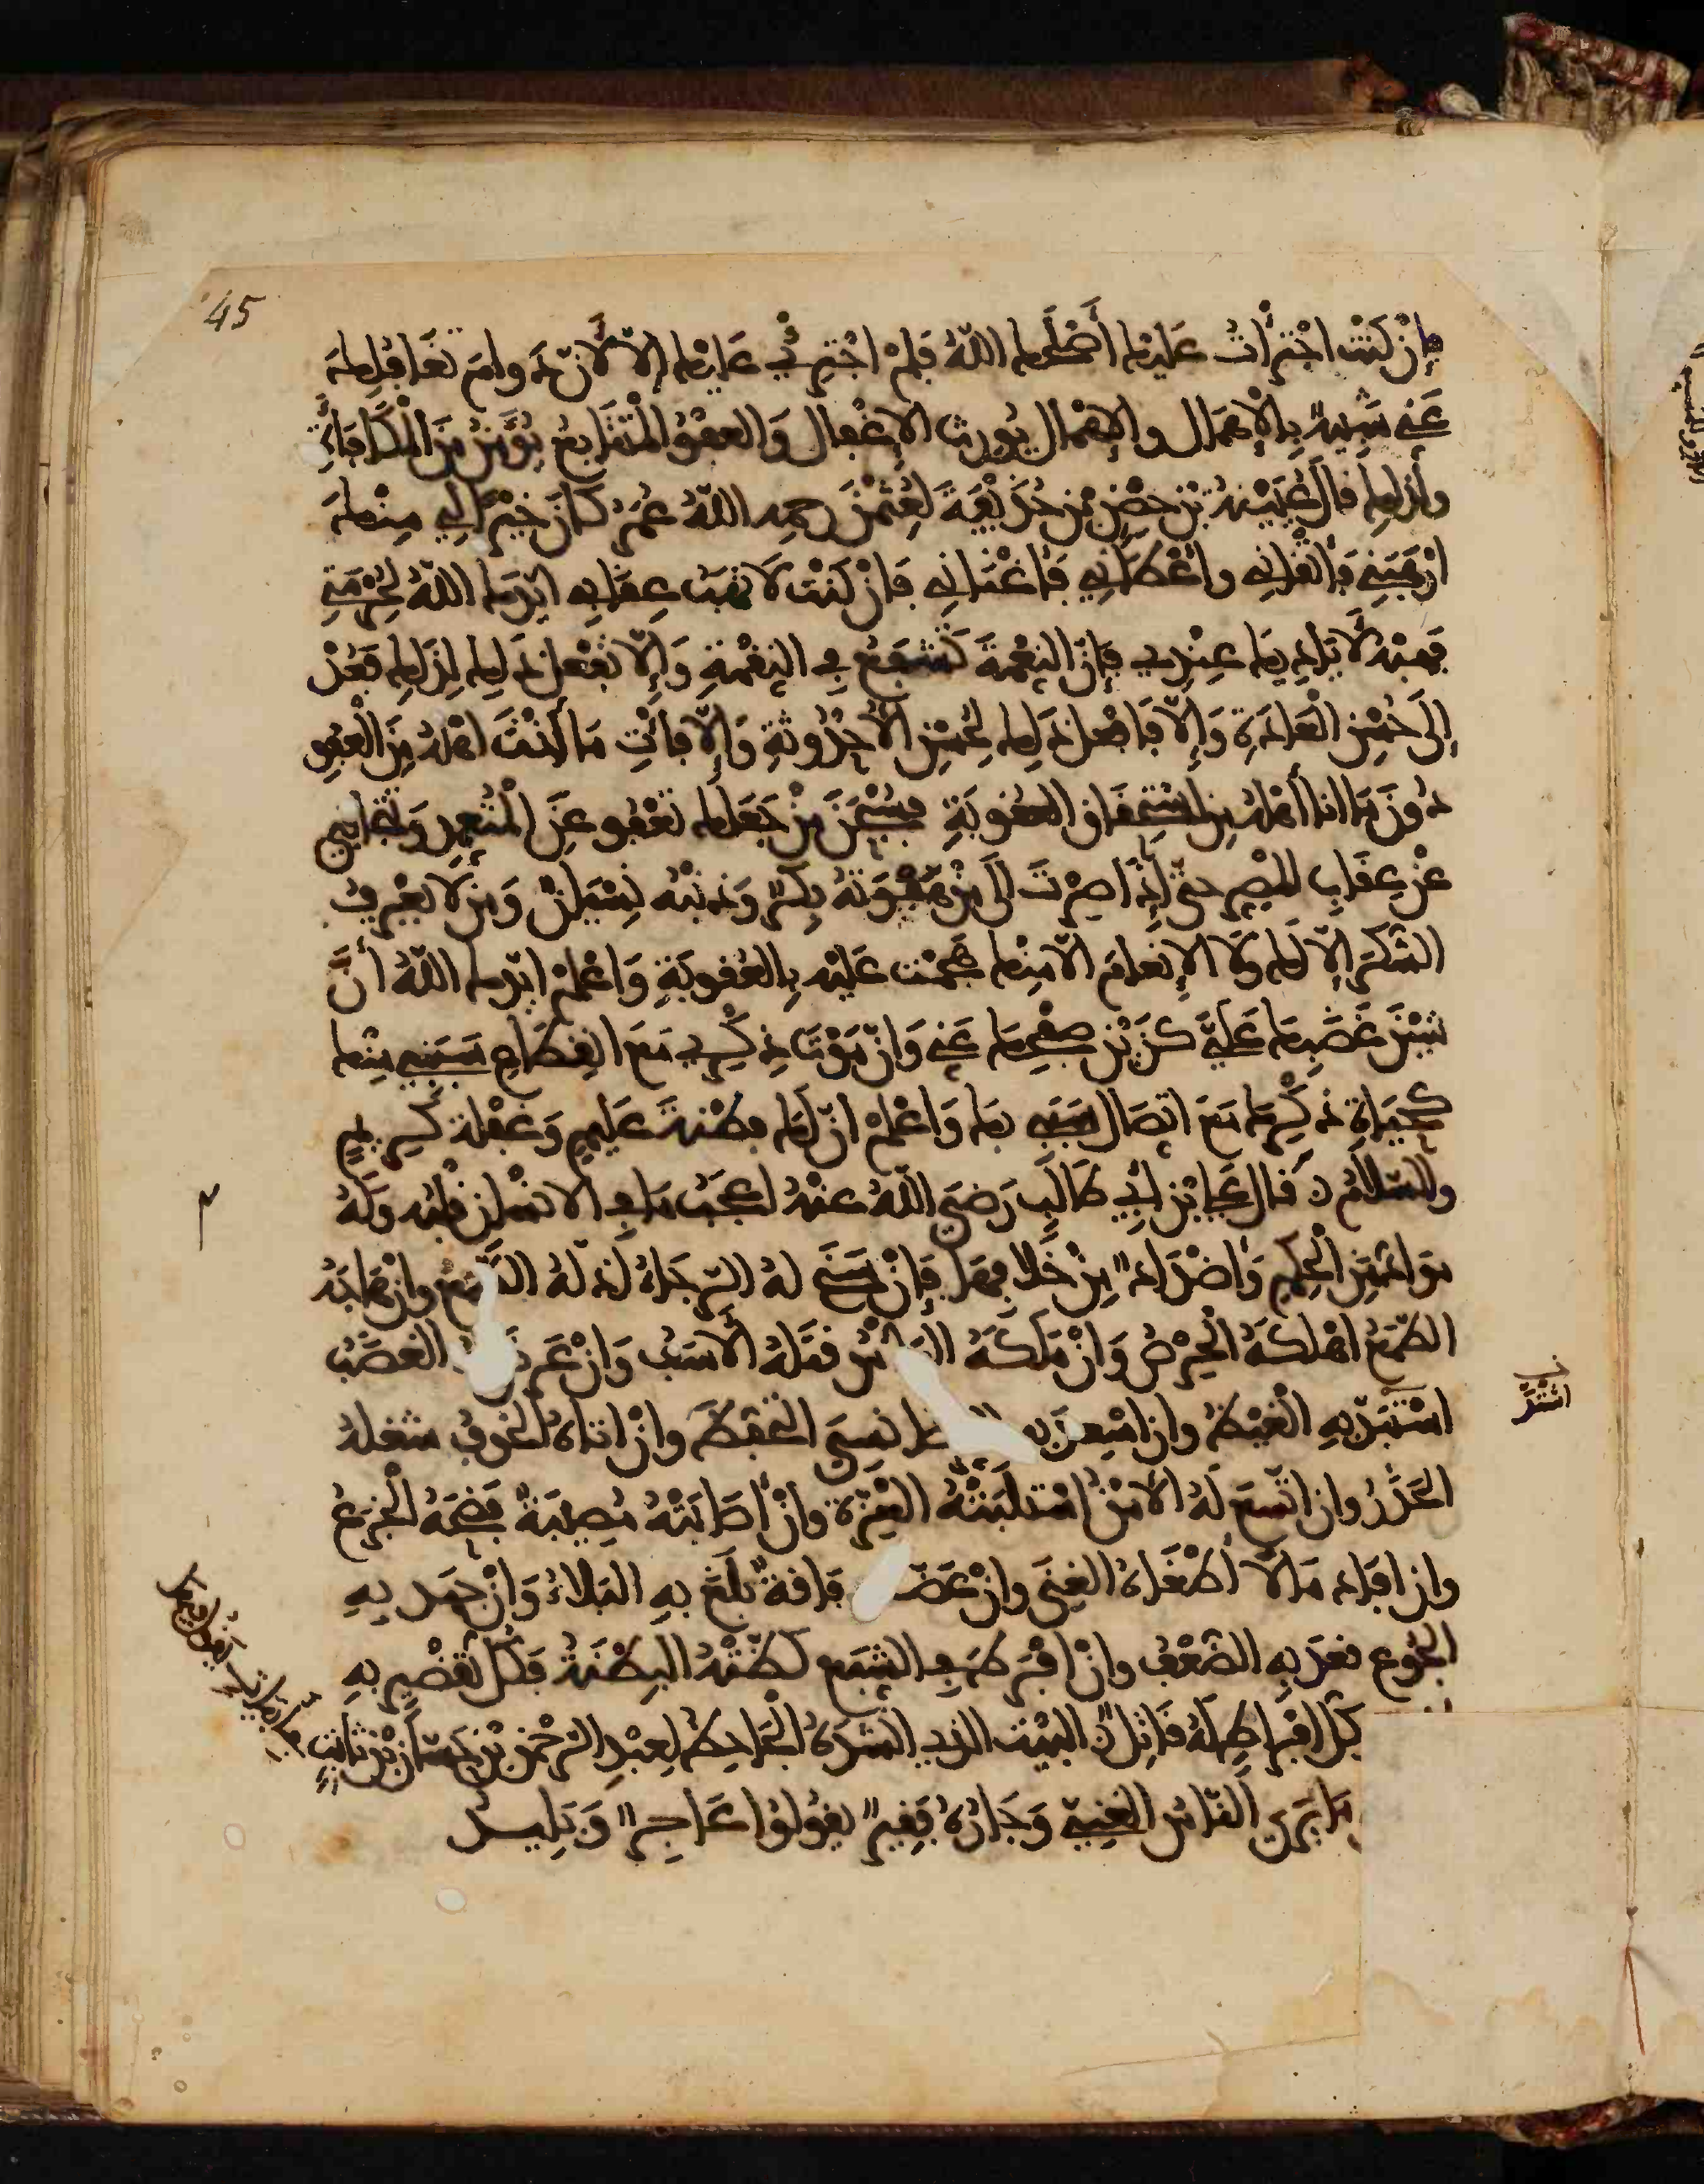 45
فإن كنت اجترأت عليك أصلحك الله فلم اجترئ عليك إلا لأن دوام تغافلك
عني شبيه بالإهمال والإهمال يورث الإغفال والعفو المتتابع يؤمن من المكافأة
ولذلك قال عيينة بن حصن بن حذيفة لعثمن رحمه الله عمر كان خيرا لي منك
أرهبني فأتقاني وأعطاني فأغناني فإن كنت لا تهب عقابي أيدك الله لحرمتي
فهبه لأياديك عندي فإن النعمة تشفع في النقمة وإلا تفعل ذلك لذلك فعد
إلى حسن العادة وإلا فافعل ذلك لحسن الأحدوثة وإلا فأت ما أنت أهله من العفو
دون ما أنا أهله من استحقاق العقوبة فسبحن من جعلك تعفو عن المتعمد وتتجافى
عن عقاب المصر حتى إذا صرت إلى من هفوته بكر وذنبه نسيان ومن لا يعرف
الشكر إلا لك ولا الإنعام إلا منك هجمت عليه بالعقوبة واعلم أيدك الله أن
شين غضبك علي كزين صفحك عني وأن موت ذكري مع انقطاع سببي منك
كحياة ذكرك مع اتصال سببي بك واعلم أن لك فطنة عليم وغفلة كريم
والسلام قال علي بن أبي طالب رضي الله عنه أعجب ما في الانسان قلبه وله
مواد من الحكم وأضداد من خلافها فإن سنح له الرجاء أذله الطمع وإن هاجه
الطمع أهلكه الحرص وإن ملكه اليأس قتله الأسف وإن عرض له الغضب
استبد به الغيظ وإن اسعد بالرضا نسي التحفظ وإن اتاه الخوف شغله
الحذر وإن اتسع له الأمن استلبته العزة وإن أصابته مصيبة فضحه الجزع
وإن افاد مالا أطغاه الغنى وإن عضته فاقة بلغ به البلاء وإن جهد به
الجوع قعد به الضعف وإن افرط في الشبع كظته البطنة فكل تقصير به
كل افراط له قاتل البيت الذي انشده الجاحظ لعبد الرحمن بن حسان بن ثابت
ما يرى الناس الغني وجاره فقير يقولوا عاجز وجليد